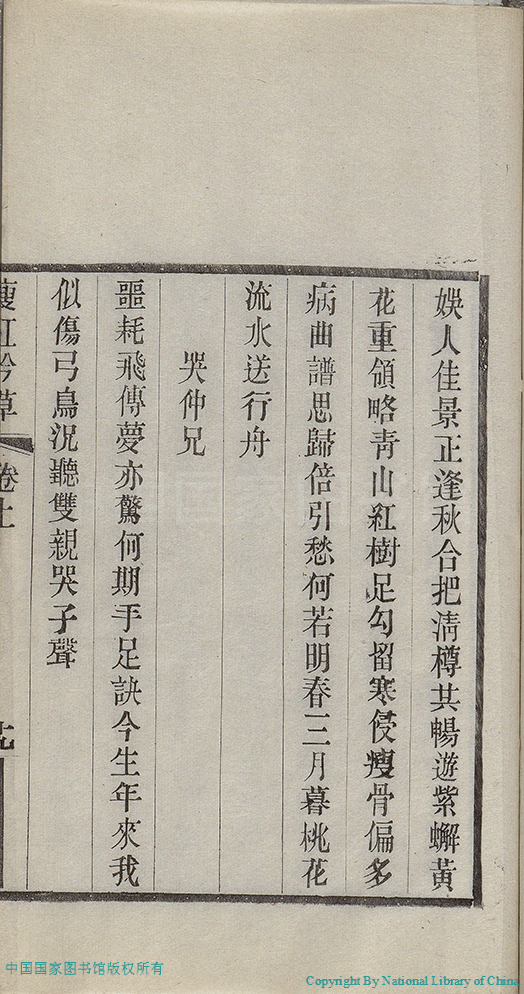 娛人佳景正逢秋合把淸樽共暢遊紫蠏黃
花重領略靑山紅樹足勾留寒侵瘦骨偏多
病曲譜思歸倍引愁何若明春三月暮桃花
流水送行舟
哭仲兄
噩耗飛傳夢亦驚何期手足訣今生年來我
似傷弓鳥況聽雙親哭子聲
瘦紅吟草 卷上
中国国家图书馆版权所有
Copyright By National Library of China